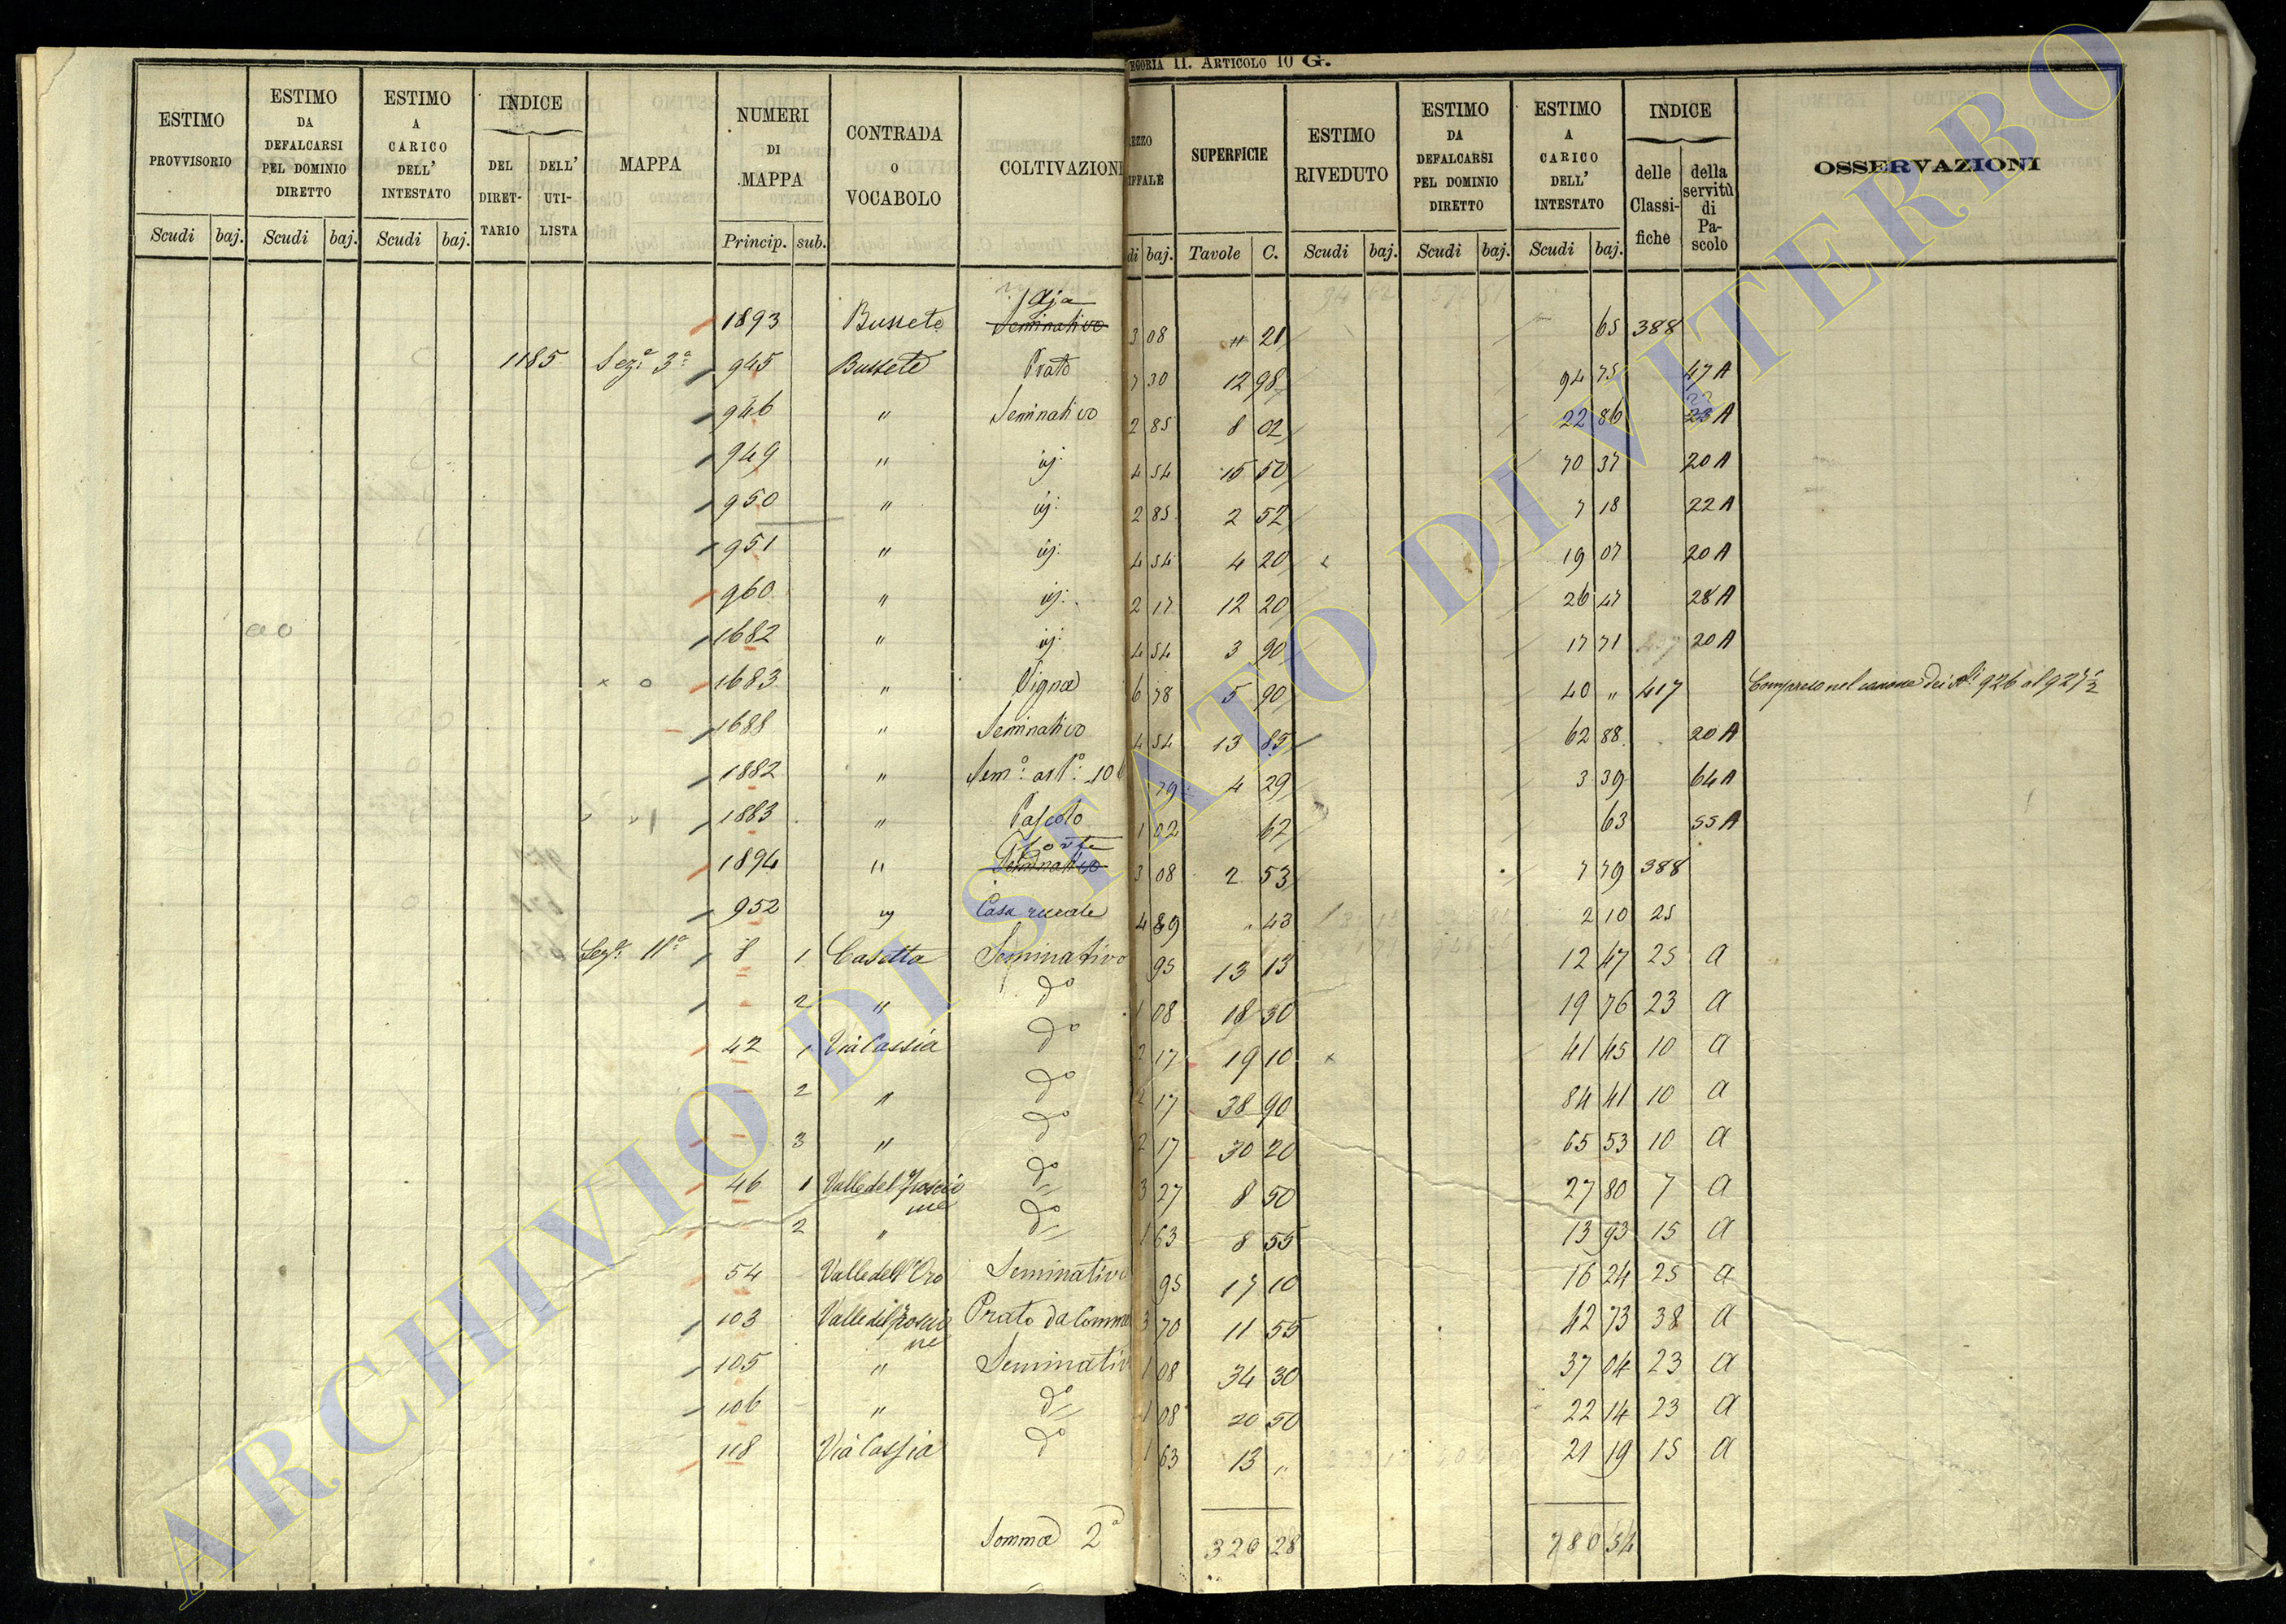 EGORIA II. ARTICOLO 10 G.
ESTIMO PROVVISORIO | ESTIMO DA DEFALCARSI PEL DOMINIO DIRETTO | ESTIMO A CARICO DELL' INTESTATO | INDICE DEL DIRET-TARIO | DELL' UTI-LISTA | MAPPA | NUMERI DI MAPPA | CONTRADA O VOCABOLO | COLTIVAZION | EZZO IFFALE | SUPERFICIE | ESTIMO RIVEDUTO | ESTIMO DA DEFALCARSI PEL DOMINIO DIRETTO | ESTIMO A CARICO DELL' INTESTATO | INDICE delle Classi-fiche | della servitù di Pa-scolo | OSSERVAZIONI
Scudi baj. | Scudi baj. | Scudi baj. | Princip. sub. | di baj. | Tavole C. | Scudi baj. | Scudi baj. | Scudi baj.
1893 Busseto Aja Seminativo 3 08 " 21 65 388
1185 Sez.e 3a 945 Busseto Prato 7 30 12 98 94 75 47 A
946 " Seminativo 2 85 8 02 22 86 A
949 " id: 4 54 15 50 70 37 20 A
950 " id: 2 85 2 52 7 18 22 A
951 " id: 4 54 4 20 19 07 20 A
960 " id: 2 17 12 20 26 47 28 A
1682 " id: 4 54 3 90 17 71 20 A
1683 " Vigna 6 78 5 90 40 " 417 Compreso nel canone dei Ni 926 al 927 1/2
1688 " Seminativo 4 54 13 85 62 88 20 A
1882 " Semo: asto: 10 79 4 29 3 39 64 A
1883 " Pascolo 1 02 62 63 55 A
1894 " Seminativo 3 08 2 53 7 79 388
952 id Casa rurale 4 89 " 43 2 10 25
Seze. 11a 8 1 Casetta Seminativo 95 13 13 12 47 25 A
2 " do 1 08 18 30 19 76 23 A
42 1 Via Cassia do 2 17 19 10 41 45 10 A
2 " do 2 17 38 90 84 41 10 A
3 " do 2 17 30 20 65 53 10 A
46 1 Valle del do 3 27 8 50 27 80 7 A
2 " do 1 63 8 55 13 93 15 A
54 Valle dell'Oro Seminativo 95 17 10 16 24 25 A
103 Valle del Prato da Comm 3 70 11 55 42 73 38 A
105 " Seminativ 1 08 34 30 37 04 23 A
106 " do 1 08 20 50 22 14 23 A
118 Via Cassia do 1 63 13 " 21 19 15 A
Somma 2a 320 28 780 34
ARCHIVIO DI STATO DI VITERBO